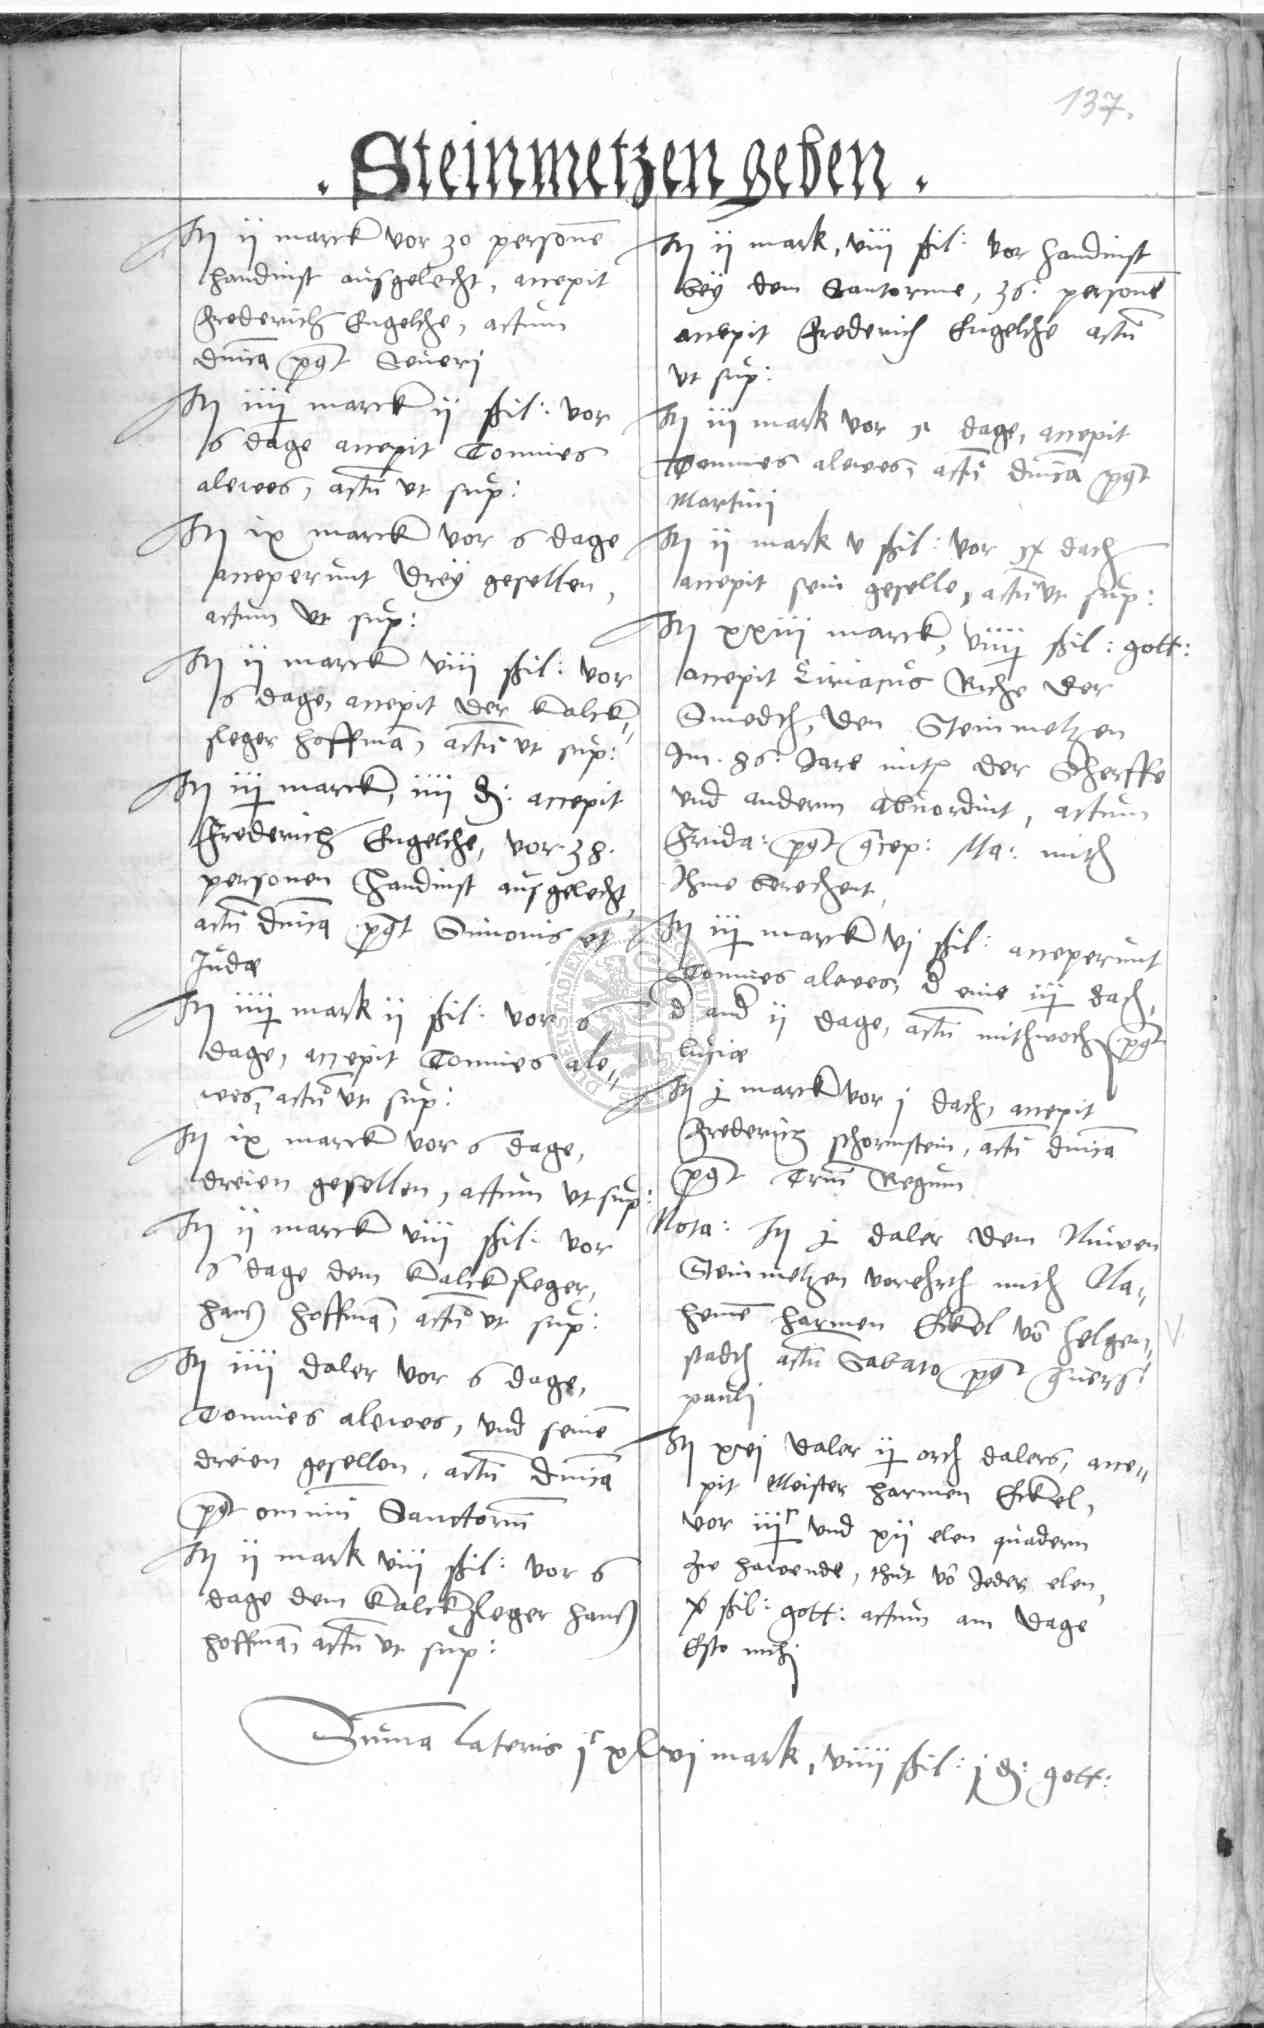 137.
. Steinmetzen geben .
It ij marck vor 30 persone
handinst ausgelecht, accepit
Frederich Engelche, actum
dnica post Severj
It iiij marck ij ßil: vor
6 dage accepit Tonnies
alewes, actu vt sup:
It ix marck vor 6 dage
acceperunt dreÿ gesellen,
actum vt sup:
It ij marck viij ßil: vor
6 dage, accepit der kalck„
sleger hoffman, actu vt sup:
It iij marck, iiij d: accepit
Frederich Engelche, vor 38.
personen Handinst ausgelecht,
actu dnica post Simonis et
Judæ
It iiij mark ij ßil: vor 6
dage, accepit Tonnies ale„
wes, actu vt sup:
It ix marck vor 6 dage,
dreien gesellen, actum vt sup:
It ij marck viij ßil: vor
6 dage dem kalcksleger,
hanß hoffman, actu vt sup:
It iiij daler vor 6 dage,
Tonnies alewes, vnd seine
dreien gesellen, actu dnica
post omniu Sanctorum
It ij mark viij ßil: vor 6
dage dem kalcksleger hanß
hoffman, actu vt sup:
It ij mark, viij ßil: vor handinst
beÿ dem 36. persone
accepit Frederich Engelche actu
vt sup:
It iij mark vor dage, accepit
Tonnies alewes, actu dnica post
Martini
It ij mark v ßil: vor dach
accepit sein geselle, actu vt sup:
It xxiij marck, viiij ßil: gott:
accepit Ciriacus Riche der
Smedth, den Steinmetzen
Im. 86. Jare mit der Scherffe
vnd anderm actum
Frida: post Ma: mith
Ihme berechent,
It iij marck vj ßil: acceperunt
Tonnies alewes, d eine iij dach,
d and ij dage, actu mithwoch post
Luciæ
It j marck vor j dach, accepit
Frederich schornstein, actu dnica
post Trium Regum
Nota: It j daler dem Nuwen
Steinmetzen vorehrth mith
harmen Eckel vo helgen„
stadth actu Sabato post
paulj
It xvj daler ij orth dalers, acce„
pit Meister harmen Eckel,
vor vnd xij elen quadern
zw hawende, thut vo Jeder elen,
x ßil: gott: actum am dage
Esto mihj
Summa lateris jc xlvj mark, viiij ßil: j d: gott: